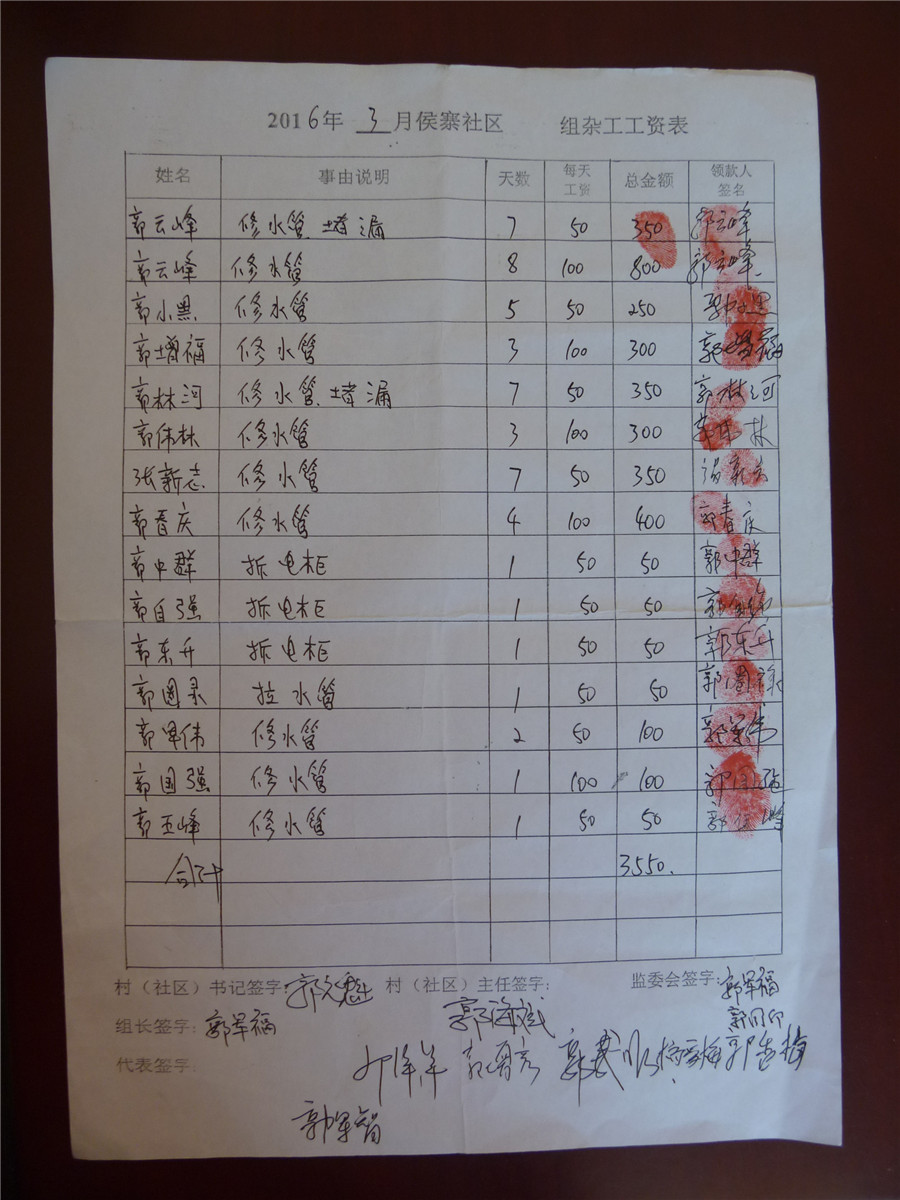 2016年 3 月侯寨社区 组杂工工资表
姓名 事由说明 天数 每天工资 总金额 领款人签名
郭云峰 修水管、堵漏 7 50 350 郭云峰
郭云峰 修水管 8 100 800 郭云峰
郭小黑 修水管 5 50 250 郭小黑
郭增福 修水管 3 100 300 郭增福
郭林河 修水管、堵漏 7 50 350 郭林河
郭休林 修水管 3 100 300 郭休林
张新志 修水管 7 50 350
郭春庆 修水管 4 100 400 郭春庆
郭中群 拆电柜 1 50 50 郭中群
郭自强 拆电柜 1 50 50
郭东升 拆电柜 1 50 50 郭东升
郭国录 拉水管 1 50 50 郭国禄
郭军伟 修水管 2 50 100 郭军伟
郭国强 修水管 1 100 100 郭国强
郭玉峰 修水管 1 50 50
合计 3550.
村（社区）书记签字： 村（社区）主任签字： 监委会签字：郭军福
组长签字：郭军福
代表签字：
郭军智